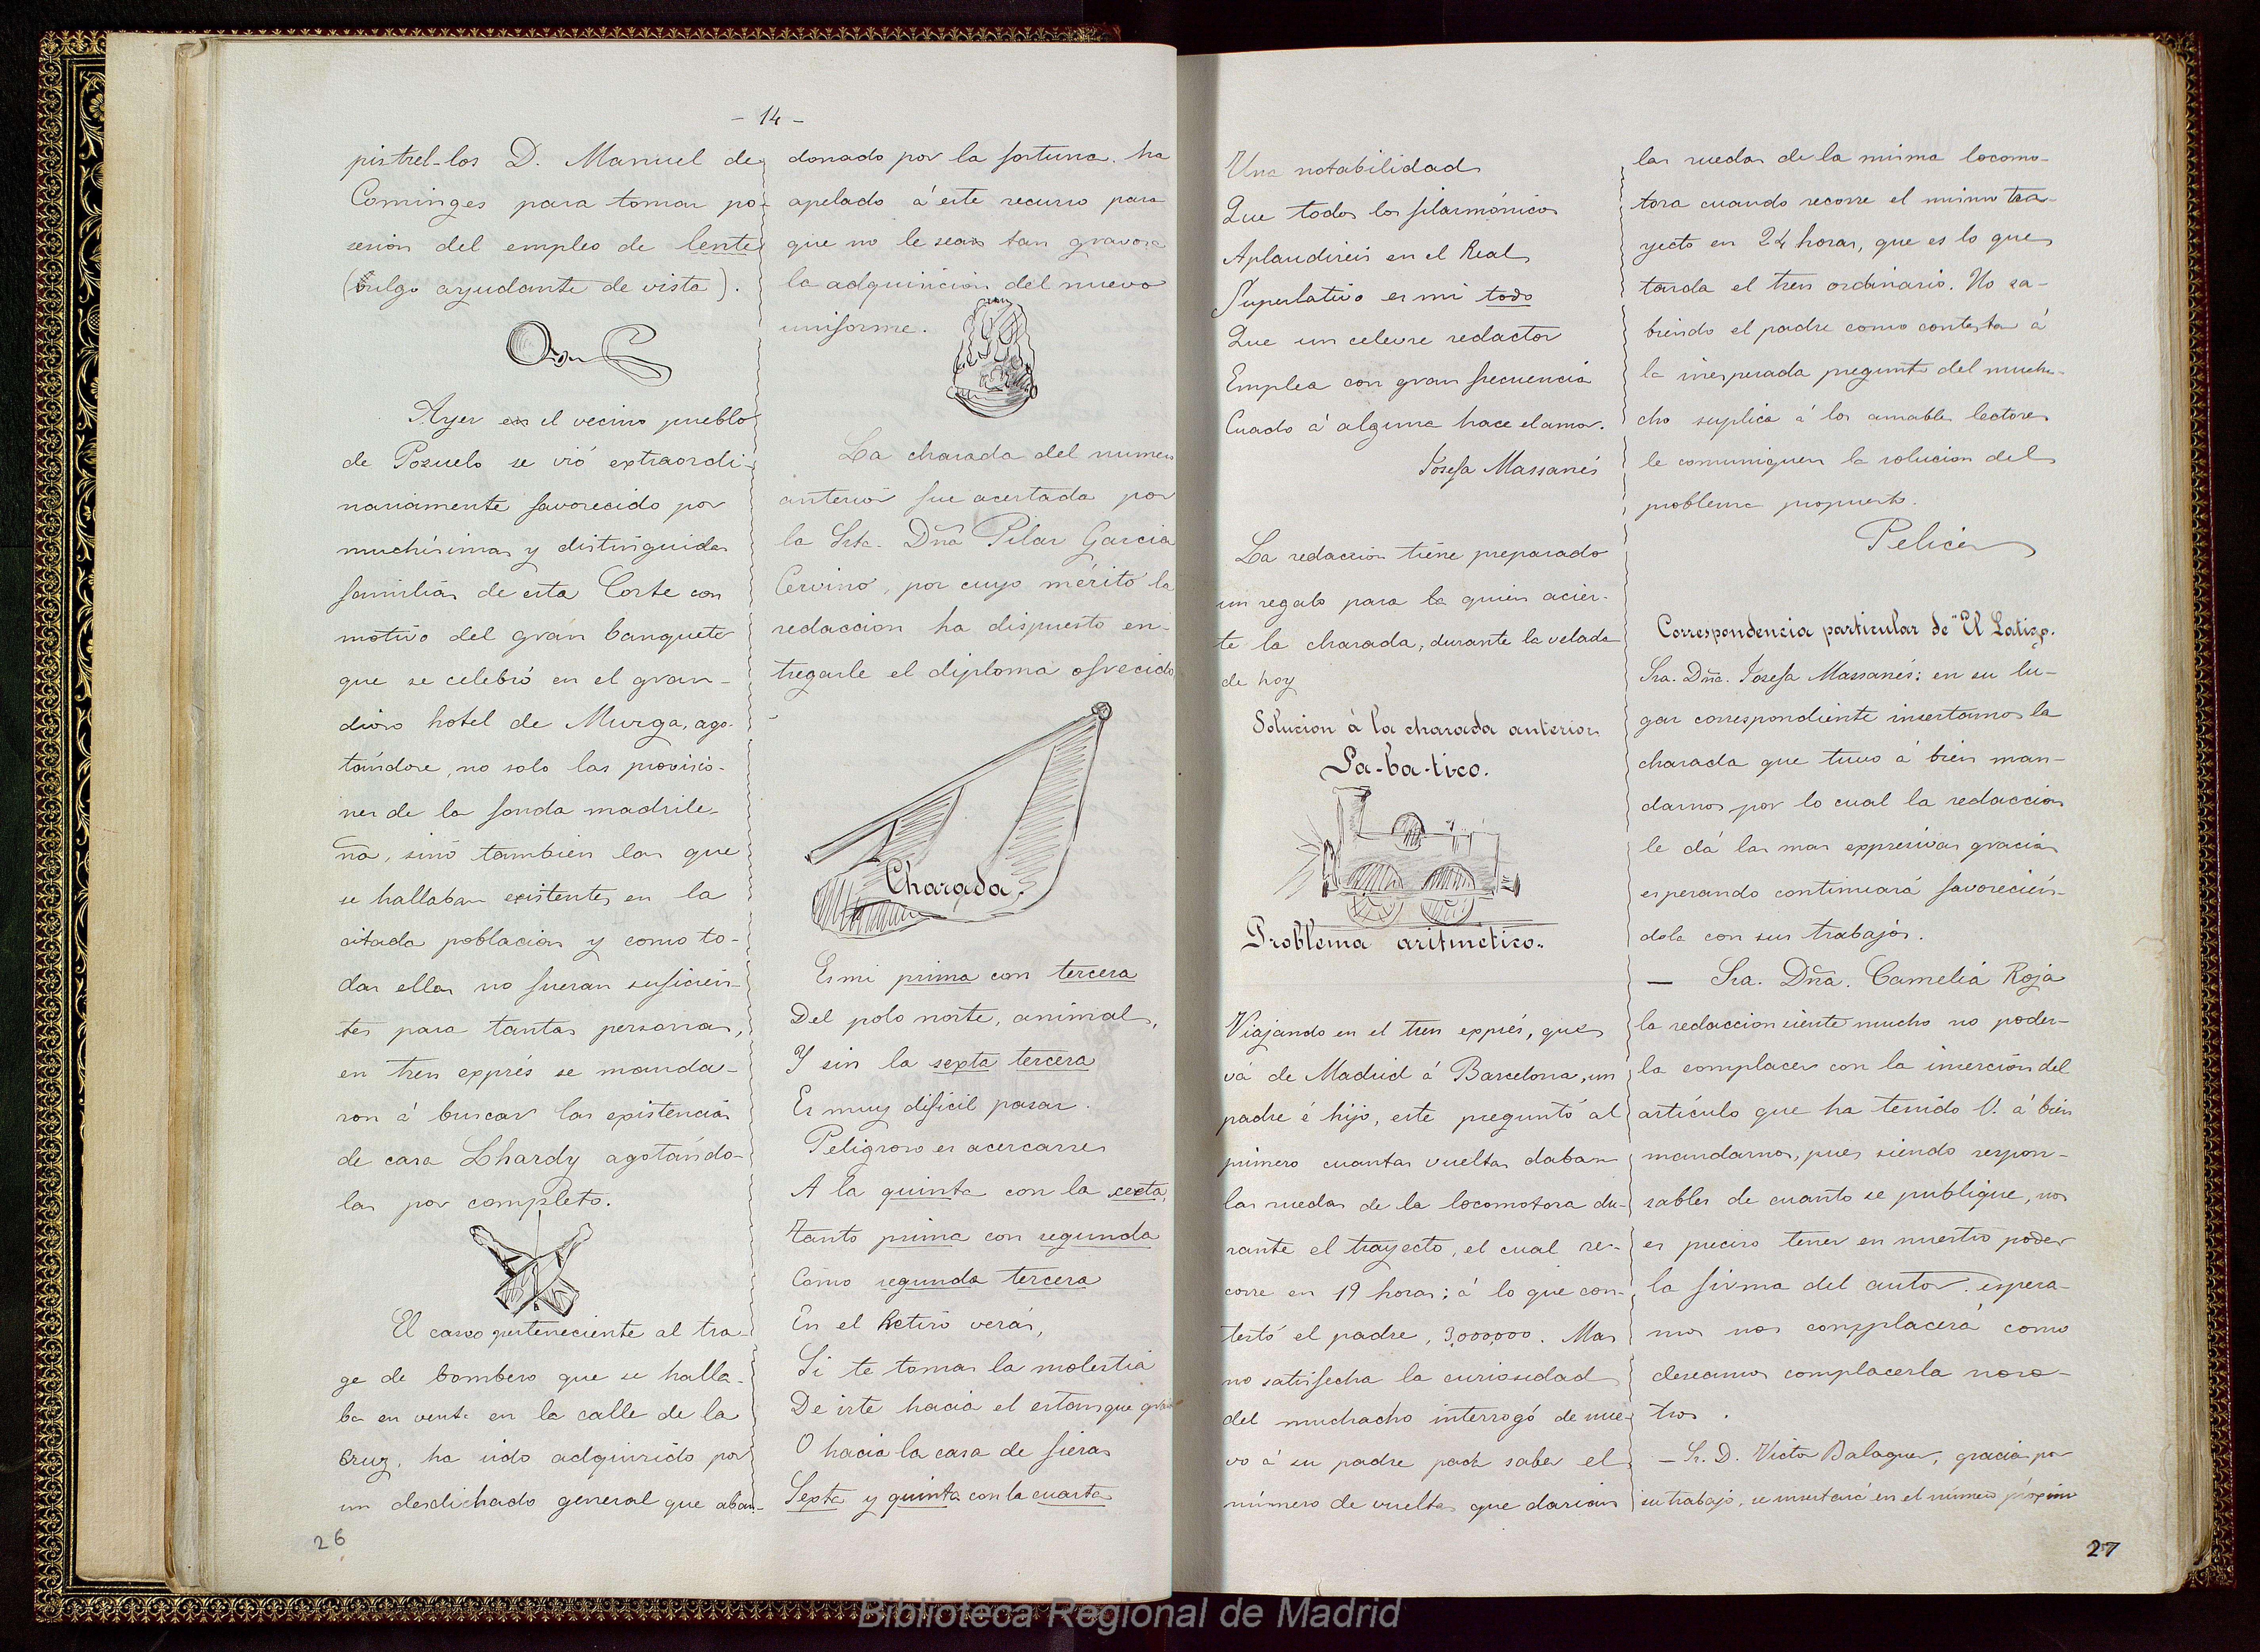 - 14 -
pistrel-los D. Manuel de
Cominges para tomar po-
sesion del empleo de lente
(vulgo ayudante de vista).
Ayer en el vecino pueblo
de Pozuelo se vió extraordi-
nariamente favorecido por
muchisimas y distinguidas
familias de esta Corte con
motivo del gran banquete
que se celebró en el gran-
dioso hotel de Murga, ago-
tándose, no solo las provisio-
nes de la fonda madrile-
ña, sinó tambien las que
se hallaban existentes en la
citada poblacion y como to-
das ellas no fueran suficien-
tes para tantas personas,
en tren exprés se manda-
ron á buscar las existencias
de casa Lhardy agotándo-
las por completo.
El casco perteneciente al tra-
ge de bombero que se halla-
ba en venta en la calle de la
Cruz, ha sido adquirido por
un desdichado general que aban-
26
donado por la fortuna, ha
apelado á este recurso para
que no le sea tan gravosa
la adquisicion del nuevo
uniforme.
La charada del numero
anterior fue acertada por
la Srta. Dña Pilar Garcia
Cervino, por cuyo mérito la
redaccion ha dispuesto en-
tregarle el diploma ofrecido
Charada.
Es mi prima con tercera
Del polo norte, animal,
Y sin la sexta tercera
Es muy dificil pasar.
Peligroso es acercarse
A la quinta con la sexta,
Tanto prima con segunda
Como segunda tercera
En el Retiro verás,
Si te tomas la molestia
De irte hacia el estanque
O hacia la casa de fieras
Sexta y quinta con la cuarta
Una notabilidad
Que todos los filarmónicos
Aplaudireis en el Real
Superlativo es mi todo
Que un celevre redactor
Emplea con gran frecuencia
Cuado á alguna hace el amor.
Josefa Massanés
La redaccion tiene preparado
un regalo para la quien acier-
te la charada, durante la velada
de hoy
Solucion á la charada anterior
Sa-ba-tico.
Problema aritmetico..
Viajando en el tren exprés, que
vá de Madrid á Barcelona, un
padre é hijo, este preguntó al
primero cuantas vueltas daban
las ruedas de la locomotora du-
rante el trayecto, el cual re-
corre en 19 horas: á lo que con-
testó el padre, 3,000,000. Mas
no satisfecha la curiosidad
del muchacho interrogó de nue-
vo á su padre para saber el
número de vueltas que darian
las ruedas de la misma locomo-
tora cuando recorre el mismo tra-
yecto en 24 horas, que es lo que
tarda el tren ordinario. No sa-
biendo el padre como contestar á
la inesperada pregunta del mucha-
cho suplica á los amables lectores
le comuniquen la solucion del
problema propuesto.
Pelicer
Correspondencia particular de "El Latigo.
Sra. Dña. Josefa Massanés: en su lu-
gar correspondiente insertamos la
charada que tuvo á bien man-
darnos, por lo cual la redaccion
le dá las mas expresivas gracias
esperando continuará favorecién-
dola con sus trabajos.
— Sra. Dña. Camelia Roja
la redaccion siente mucho no poder-
la complacer con la incercion del
artículo que ha tenido V. á bien
mandarnos, pues siendo respon-
sables de cuanto se publique, nos
es preciso tener en nuestro poder
la firma del autor. espera-
mos nos complacerá como
deseamos complacerla noso-
tros.
— Sr. D. Victor Balaguer, gracias por
su trabajo, se insertará en el número próximo
27
Biblioteca Regional de Madrid